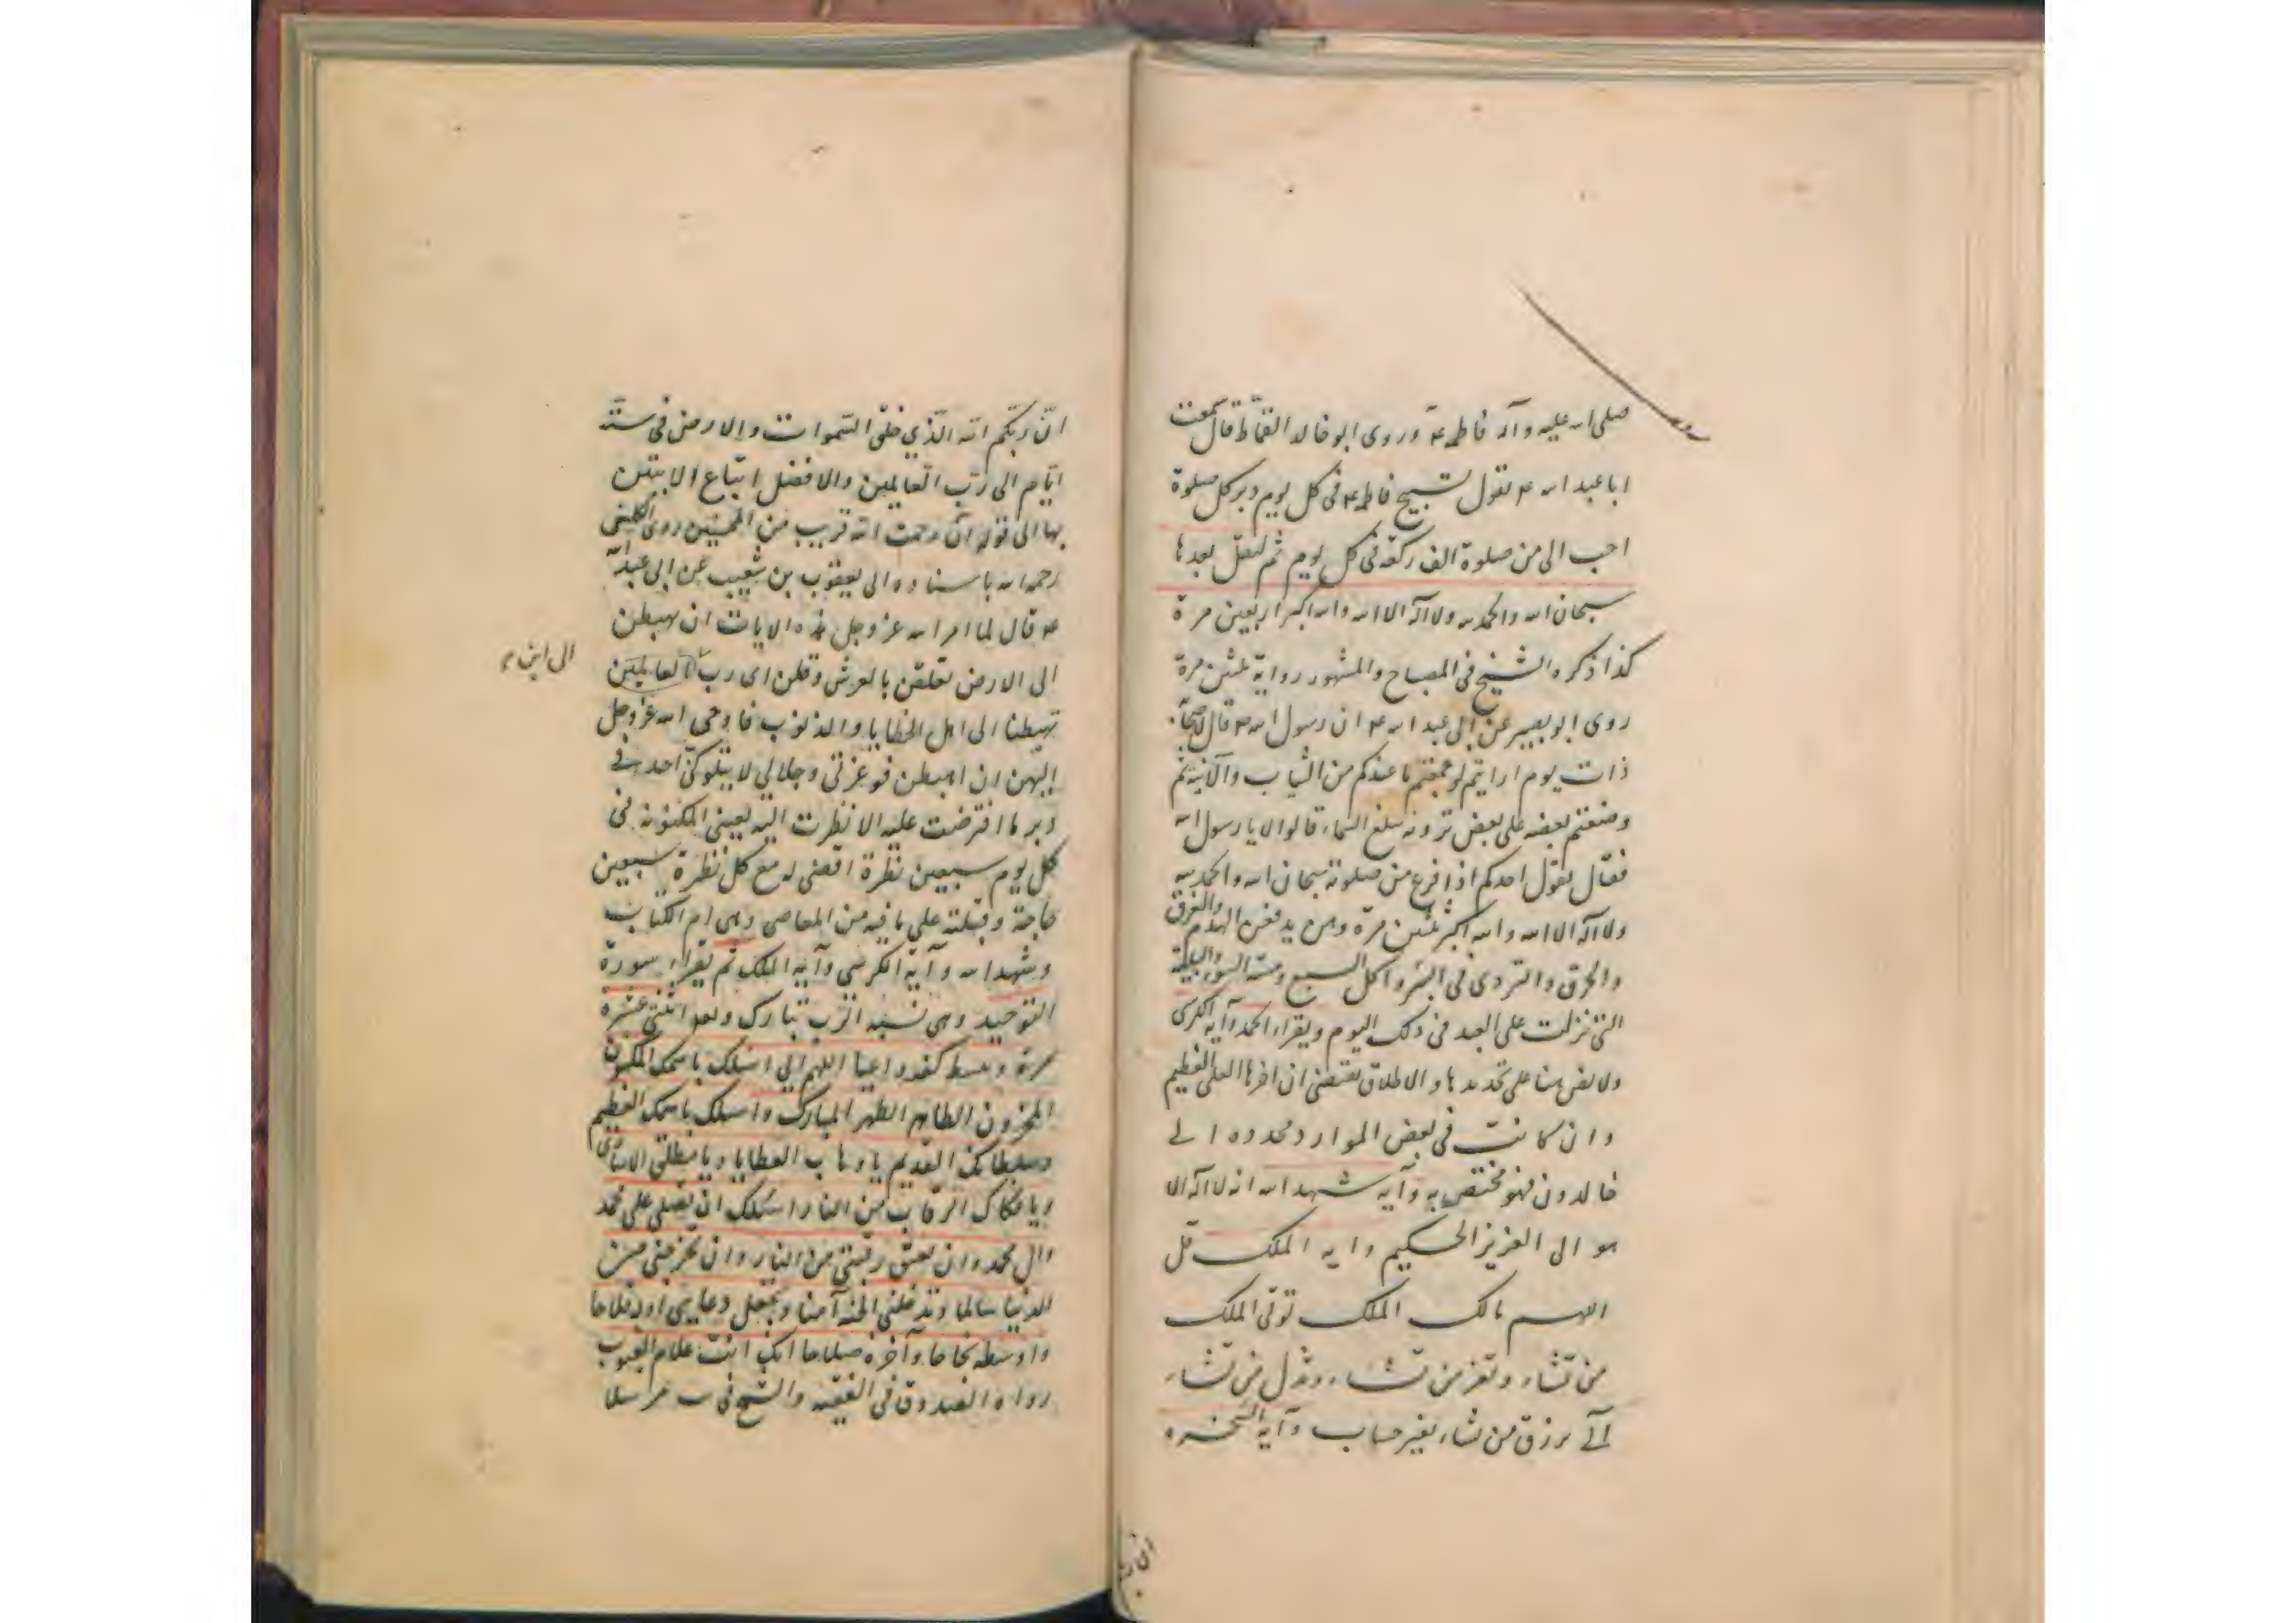 صلى الله عليه وآله فاطمة ع وروى ابو خالد القماط قال سمعت
ابا عبد الله ع يقول تسبيح فاطمة ع فى كل يوم دبر كل صلوة
احب الى من صلوة الف ركعة فى كل يوم ثم ليقل بعدها
سبحان الله والحمد لله ولا اله الا الله والله اكبر اربعين مرة
كذا ذكره الشيخ فى المصباح والمشهور رواية ثلثين مرة
روى ابو بصير عن ابى عبد الله ع ان رسول الله ص قال لاصحابه
ذات يوم ارايتم لو جمعتم ما عندكم من الثياب والآنية ثم
وضعتم بعضه على بعض ترونه يبلغ السماء قالوا لا يا رسول الله
فقال يقول احدكم اذا فرغ من صلوته سبحان الله والحمد لله
ولا اله الا الله والله اكبر ثلثين مرة وهن يدفعن الهدم والغرق
والحرق والتردى فى البئر واكل السبع وميتة السوء والبلية
التى نزلت على العبد فى ذلك اليوم ويقراء الحمد وآية الكرسى
ولا نص هنا على تحديدها والاطلاق يقتضى ان اخرها العلى العظيم
وان كانت فى بعض الموارد محدودة الى
خالدون فهو مختص به وآية شهد الله انه لا اله الا
هو الى العزيز الحكيم واية الملك قل
اللهم مالك الملك توتى الملك
من تشاء وتعز من تشاء وتذل من تشاء
الى يرزق من تشاء بغير حساب وآية السخره
ان ربكم
انّ ربّكم الله الّذي خلق السّموات والارض فى ستّة
ايّام الى ربّ العالمين والافضل اتباع الايتين
بها الى قوله انّ رحمت الله قريب من المحسنين روى الكلينى
رحمه الله باسناده الى يعقوب بن شعيب عن ابى عبد الله
ع قال لما امر الله عز وجل هذه الايات ان يهبطن
الى الارض تعلقن بالعرش وقلن اى رب العالمين
الى اين
تهبطنا الى اهل الخطايا والذنوب فاوحى الله عز وجل
اليهن ان اهبطن فوعزتى وجلالى لا يتلوكنّ احد فى
دبر ما افترضت عليه الا نظرت اليه بعينى المكنونة فى
كل يوم سبعين نظرة اقضى له مع كل نظرة سبعين
حاجة وقبلته على ما فيه من المعاصى وهى ام الكتاب
وشهد الله وآية الكرسى وآية الملك ثم يقراء سورة
التوحيد وهى نسبة الرب تبارك وتعد اثنتى عشرة
مرة ويبسط كفه داعيا اللهم انى اسئلك باسمك المكنون
المخزون الطاهر الطهر المبارك واسئلك باسمك العظيم
وسلطانك القديم يا وهاب العطايا ويا مطلق الاسارى
ويا فكاك الرقاب من النار اسئلك ان تصلى على محمد
وال محمد وان تعتق رقبتى من النار وان تخرجنى من
الدنيا سالما وتدخلنى الجنة آمنا وتجعل دعايى اوله فلاحا
واوسطه نجاحا وآخره صلاحا انك انت علام الغيوب
رواه الصدوق فى الفقيه والشيخ فى يب مرسلا